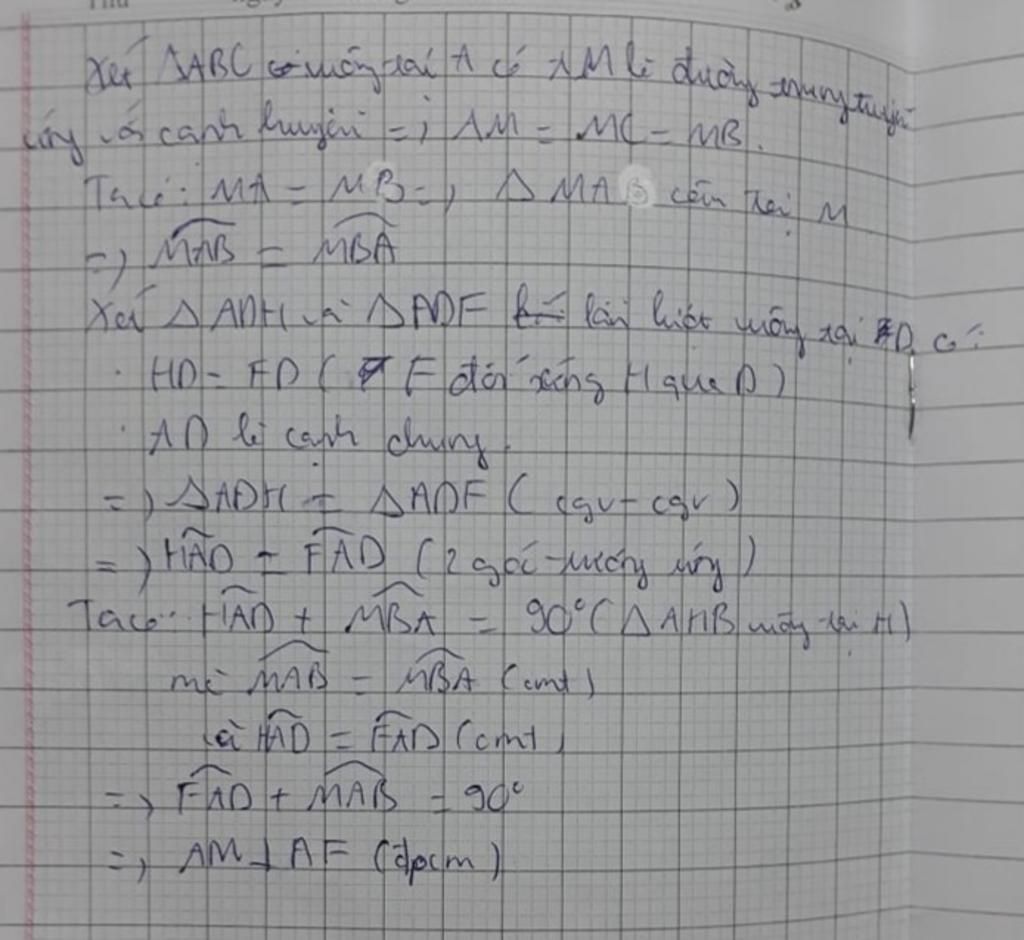 Xét ΔABC vuông tại A có AM là đường trung tuyến
ứng với cạnh huyền => AM = MC = MB.
Ta có: MA = MB => Δ MAB cân tại M
=> MAB = MBA
Xét Δ ADH và Δ ADF lần lượt vuông tại D có:
HD = FD ( F đối xứng H qua D )
AD là cạnh chung
=> ΔADH = ΔADF ( cgv - cgv )
=> HAD = FAD ( 2 góc tương ứng )
Ta có: HAD + MBA = 90° ( Δ AHB vuông tại H )
mà MAB = MBA (cmt)
và HAD = FAD (cmt)
=> FAD + MAB = 90°
=> AM ⊥ AF (đpcm)